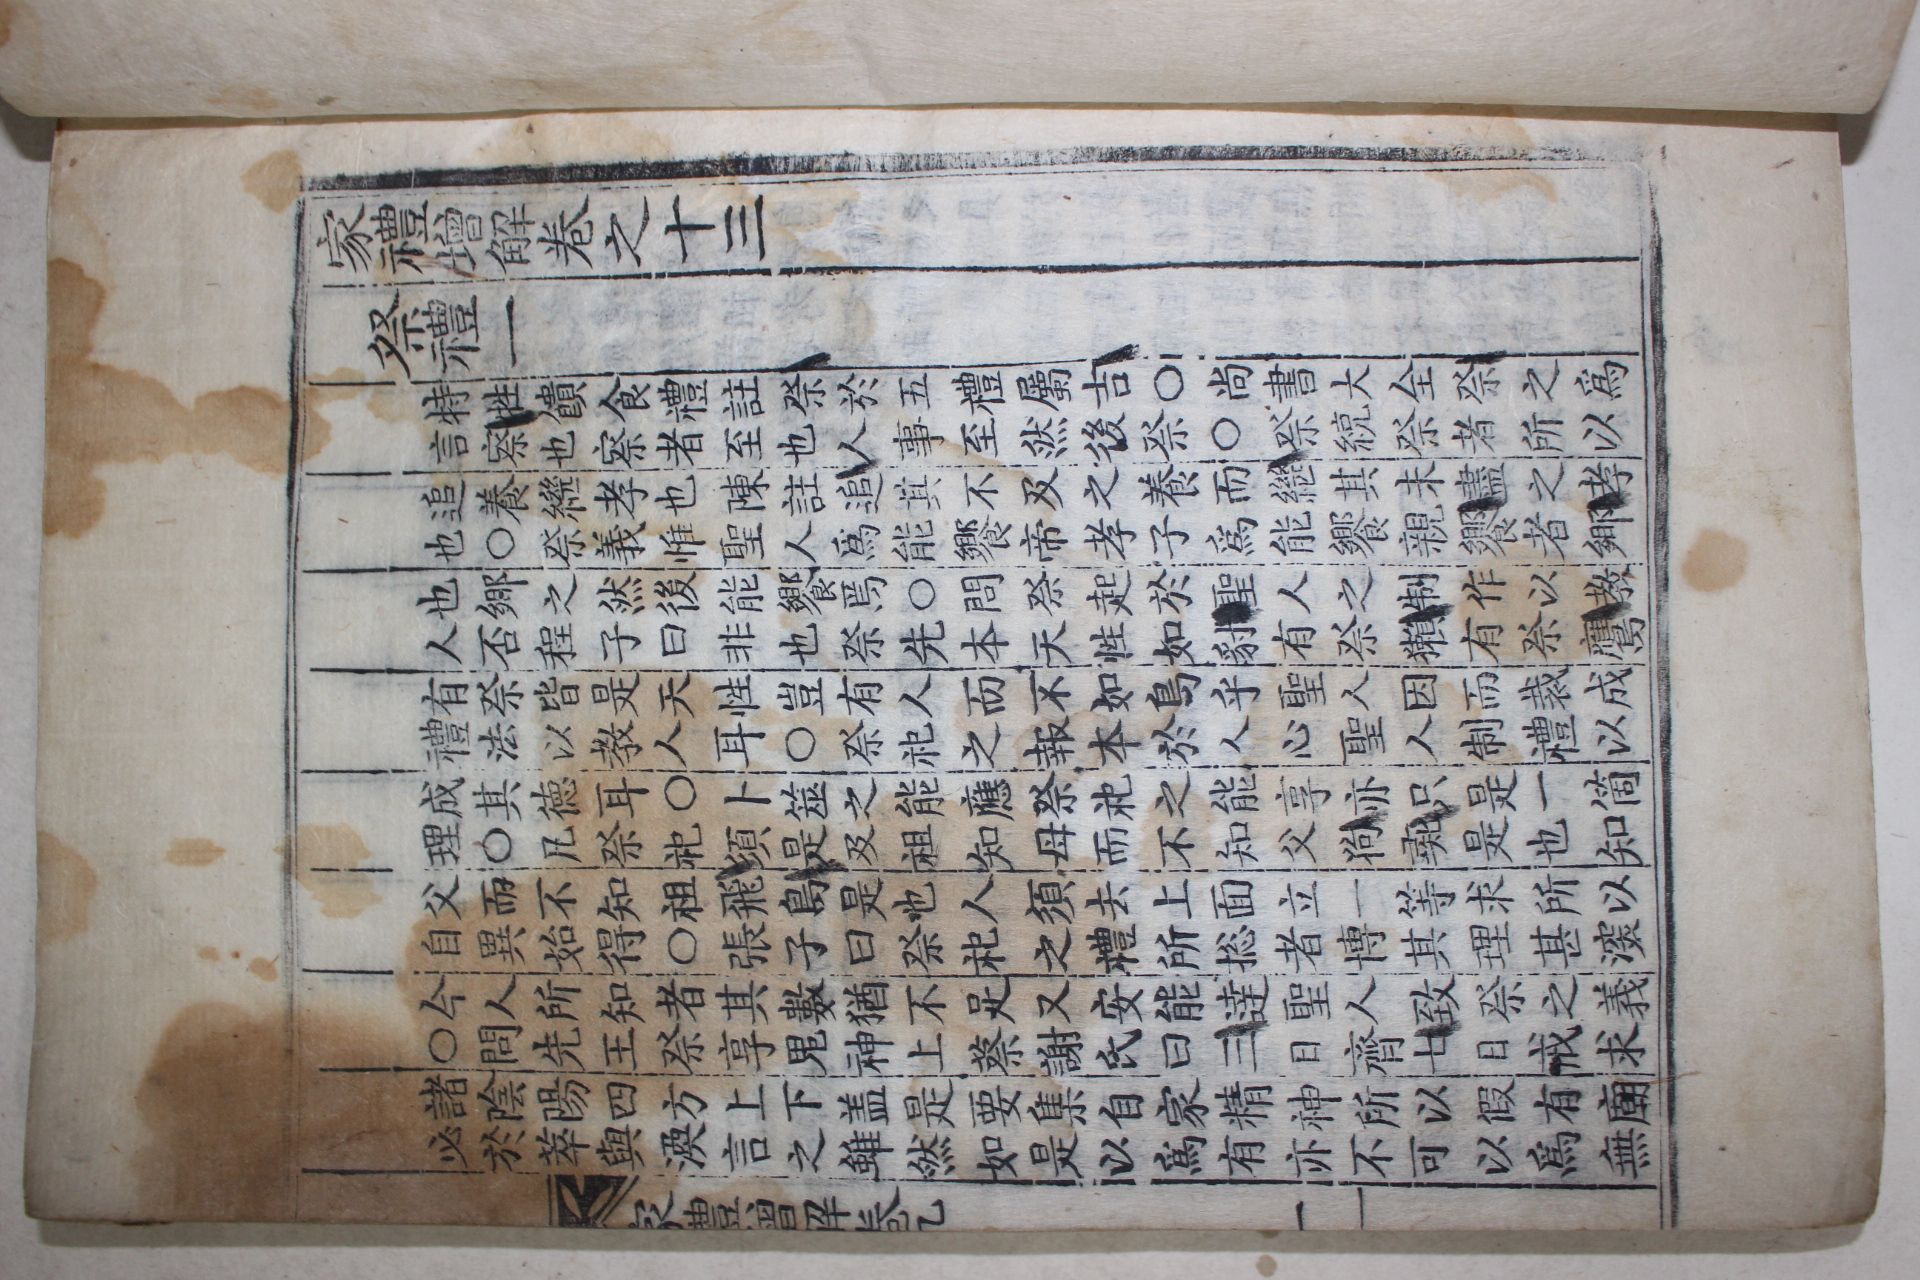 家禮增解卷之十三
祭禮一
特牲饋食禮註祭於五禮屬吉○尚書大全祭之爲
言察也察者至也人事至然後祭○祭統祭者所以
追養繼孝也陳註追其不及之養而繼其未盡之孝
也○祭義惟聖人爲能饗帝孝子爲能饗親饗者鄕
也鄕之然後能饗焉○問祭起於聖人之制作以敎
人否程子曰非也祭先本天性如豺有祭獺有祭鷹
有祭皆是天性豈有人而不如鳥乎聖人因而裁成
禮法以敎人耳○祭祀之報本於人心聖人制禮以
成其德耳○卜筮之能應祭祀之能享亦只是一箇
理○凡祭祀須是及祖知母而不知父狗彘是也知
父而不知祖飛鳥是也人須去上面立一等求所以
自異始得○張子曰祭祀之禮所緫者博其理甚深
今人所知者其數猶不足又安能達聖人致祭之義
○問先王祭享鬼神上蔡謝氏曰三日齊七日戒求
諸陰陽四方上下盖是要集自家精神所以假有廟
必於萃與渙言之雖然如是以爲有亦不可以爲無
家禮增解卷